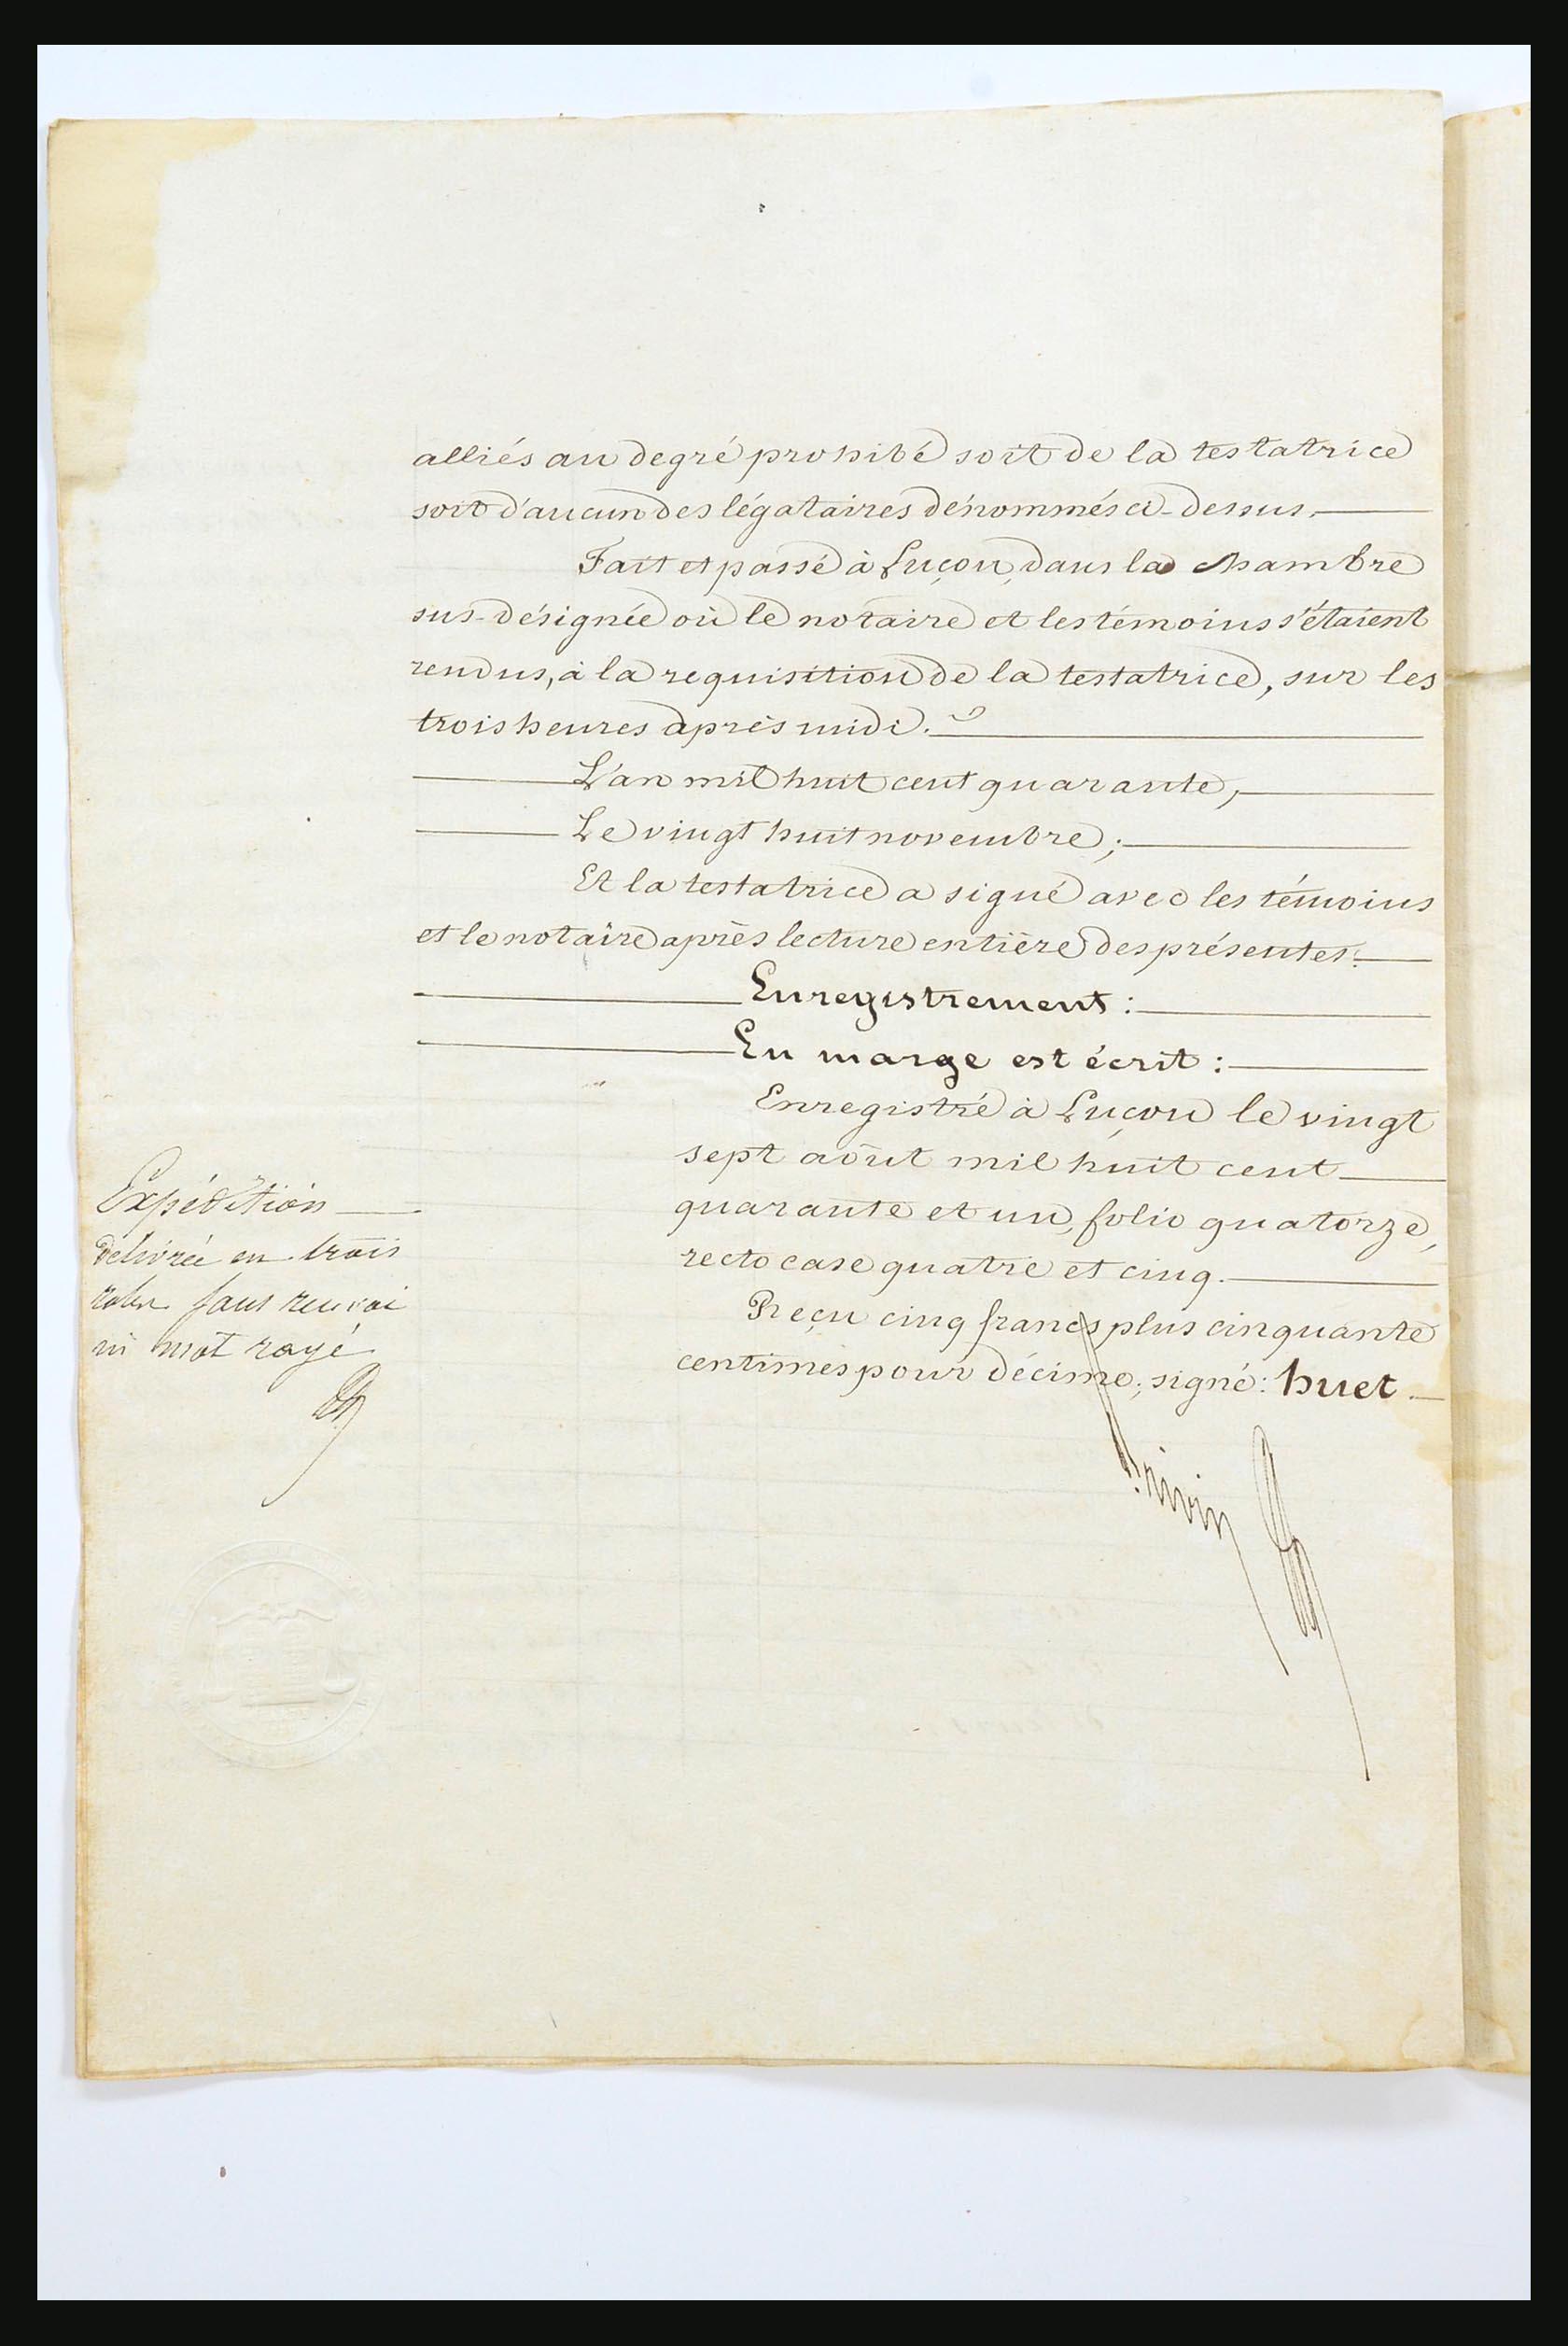 alliés au degré prohibé soit de la testatrice
soit d'aucun des légataires dénommés ci-dessus.
Fait et passé à Luçon, dans la chambre
sus-désignée où le notaire et les témoins s'étaient
rendus, à la requisition de la testatrice, sur les
trois heures après midi.
L'an mil huit cent quarante,
Le vingt huit novembre;
Et la testatrice a signé avec les témoins
et le notaire après lecture entière des présentes.
Enregistrement:
En marge est écrit:
Enregistré à Luçon le vingt
sept août mil huit cent
quarante et un, folio quatorze,
recto case quatre et cinq.
Reçu cinq francs plus cinquante
centimes pour décime; signé: huet
Expédition
délivrée en trois
roles sans renvoi
ni mot rayé